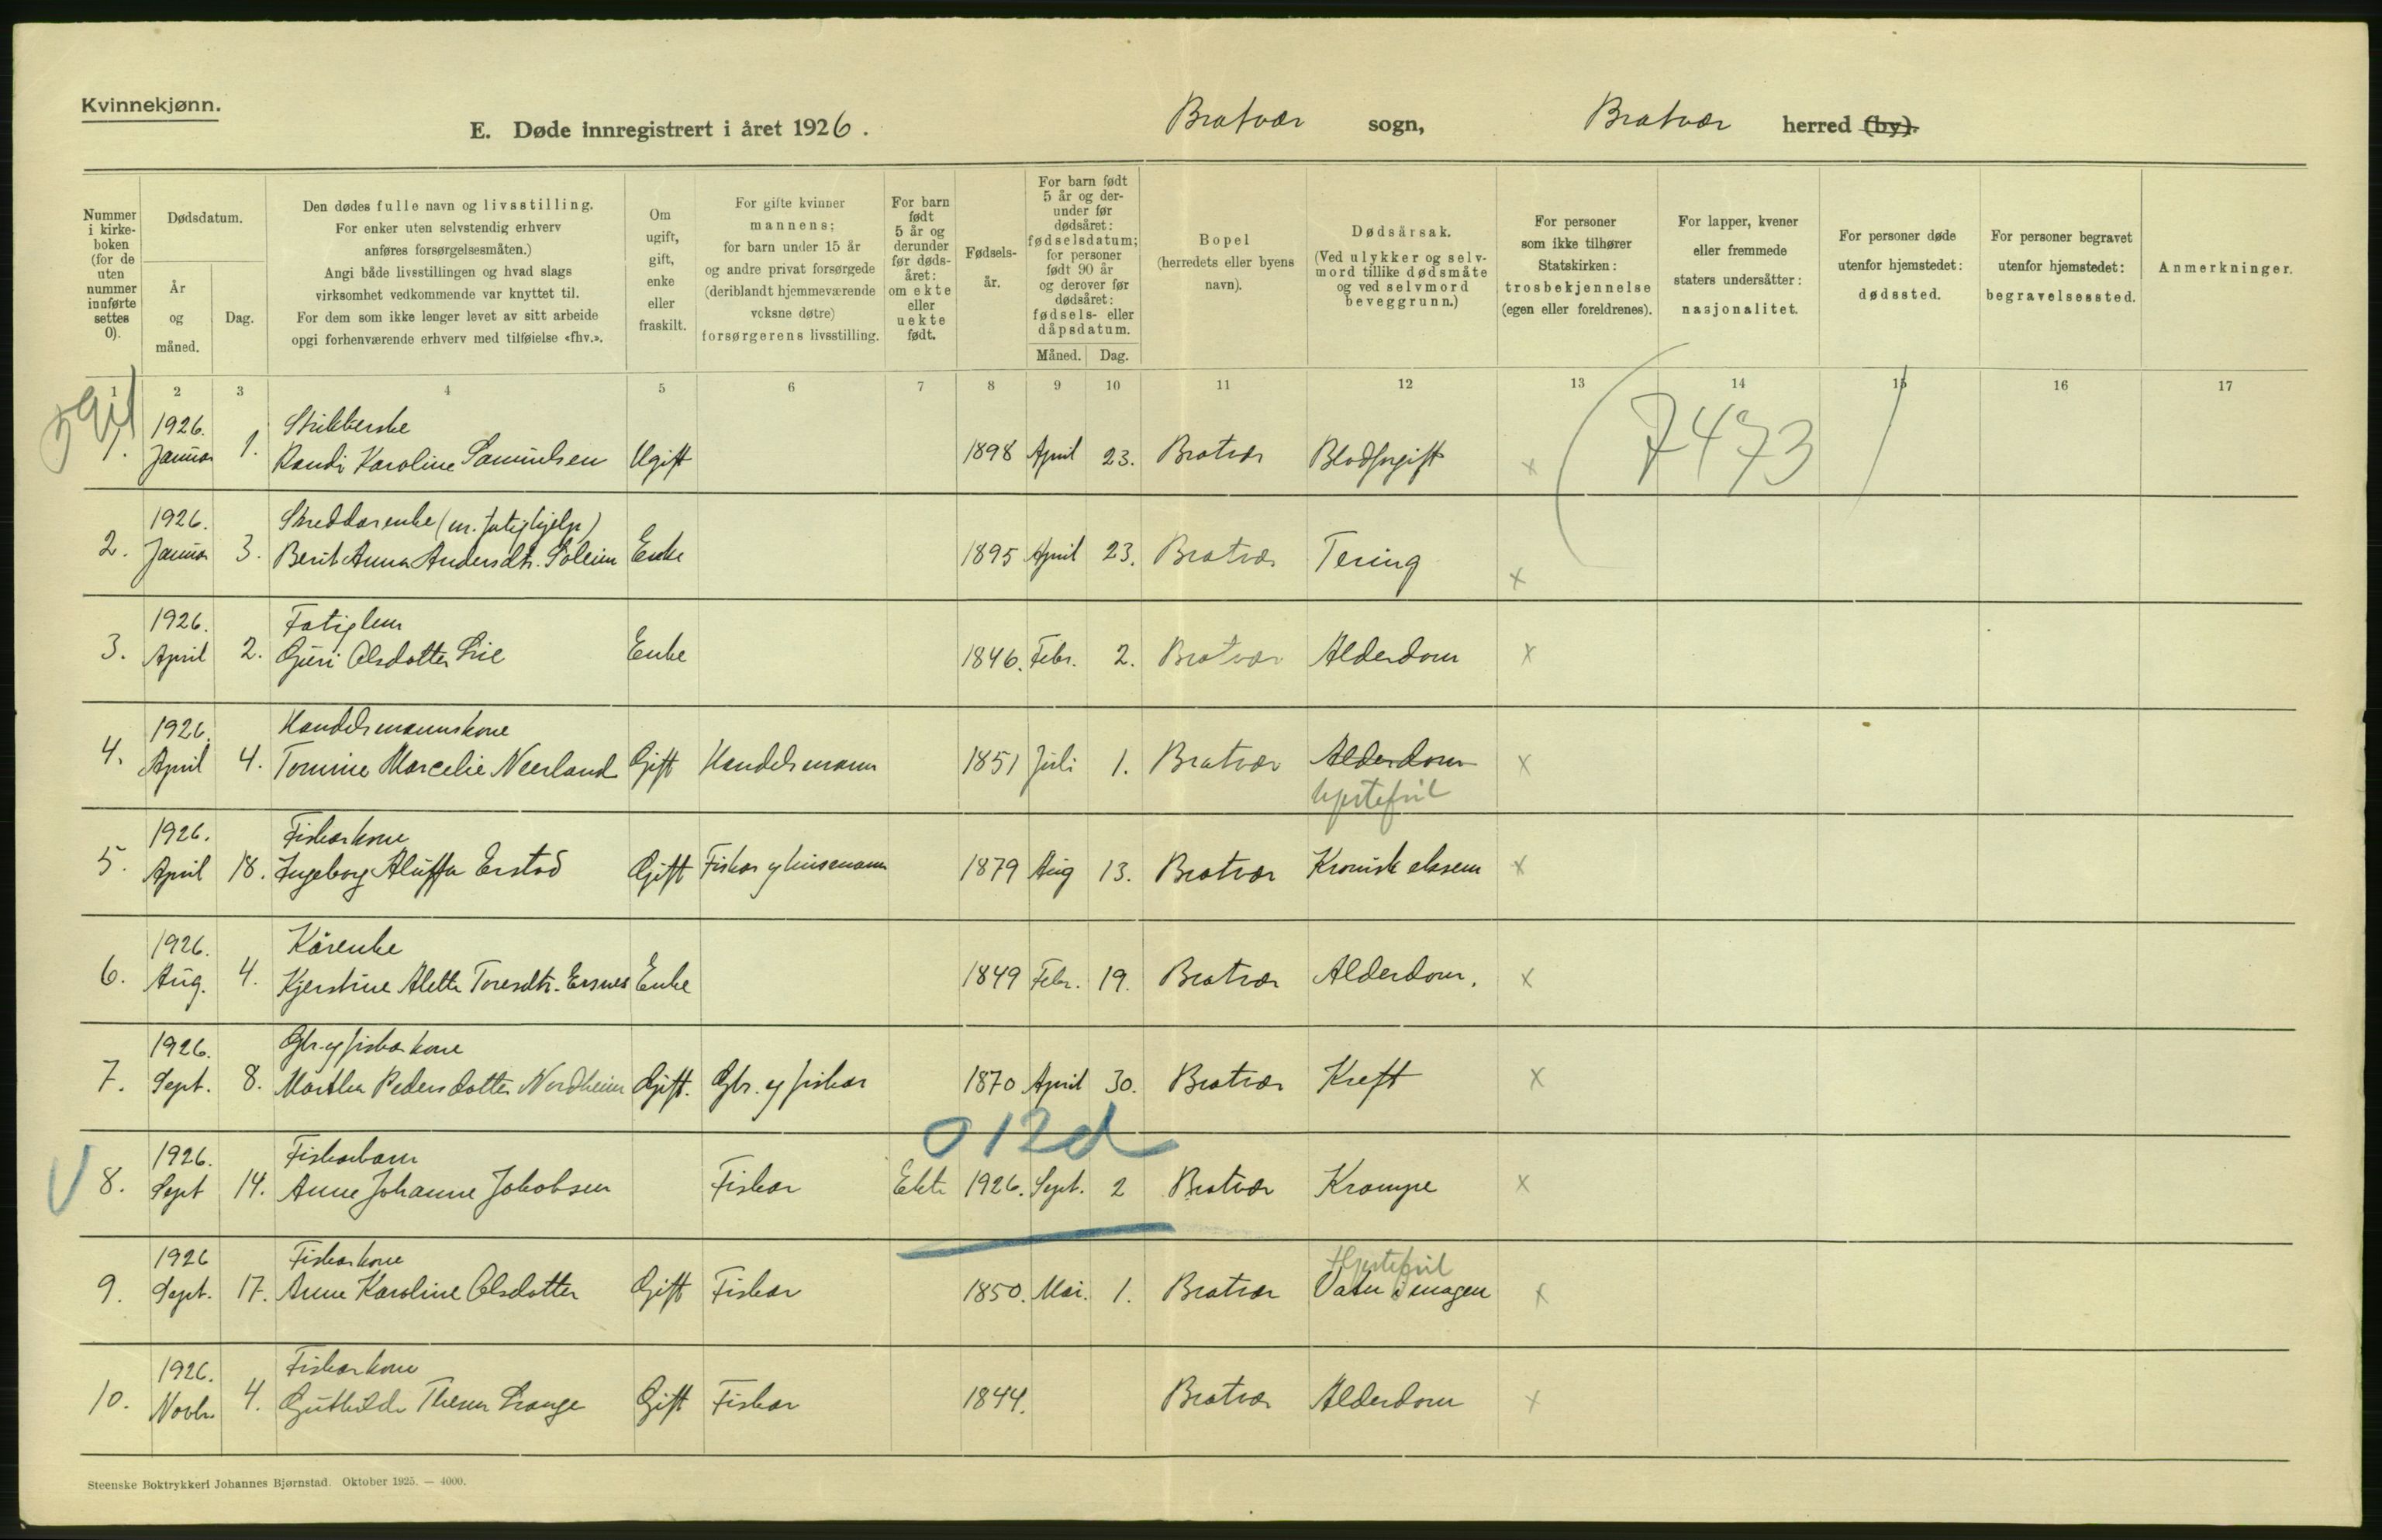 Kvinnekjønn.
E. Døde innregistrert i året 1926. Bratvær sogn, Bratvær herred (by).
Nummer i kirke-boken (for de uten nummer innførte settes 0).
Dødsdatum.
År og måned.
Dag.
Den dødes fulle navn og livsstilling.
For enker uten selvstendig erhverv
anføres forsørgelsesmåten.)
Angi både livsstillingen og hvad slags
virksomhet vedkommende var knyttet til.
For dem som ikke lenger levet av sitt arbeide
opgi forhenværende erhverv med tilføielse «fhv.».
Om ugift, gift, enke eller fraskilt.
For gifte kvinner
mannens;
for barn under 15 år
og andre privat forsørgede
(deriblandt hjemmeværende
voksne døtre)
forsørgerens livsstilling.
For barn født 5 år og derunder før døds-året: om ekte eller uekte født.
Fødsels-år.
For barn født 5 år og der-under før dødsåret: fødselsdatum; for personer født 90 år og derover før dødsåret: fødsels- eller dåpsdatum.
Måned. Dag.
Bopel (herredets eller byens navn).
Dødsårsak.
(Ved ulykker og selv-mord tillike dødsmåte og ved selvmord beveggrunn.)
For personer som ikke tilhører Statskirken: trosbekjennelse (egen eller foreldrenes).
For lapper, kvener eller fremmede staters undersåtter: nasjonalitet.
For personer døde utenfor hjemstedet: dødssted.
For personer begravet utenfor hjemstedet: begravelsessted.
Anmerkninger.
1 2 3 4 5 6 7 8 9 10 11 12 13 14 15 16 17
1926. Strikkerske
1. Januar 1. Randi Karoline Samuelsen Ugift 1898 April 23. Bratvær Blodforgift x
(7473)
1926. Skreddarenke (m. fatighjelp)
2. Januar 3. Berit Anna Andersdtr. Soleim Enke 1895 April 23. Bratvær Tering x
1926. Fatiglem
3. April 2. Guri Olsdotter Lie Enke 1846. Febr. 2. Bratvær Alderdom x
1926. Handelsmannskone
4. April 4. Tomine Marcelie Neerland Gift Handelsmann 1851 Juli 1. Bratvær Alderdom x
hjertefeil
1926. Fiskarkone
5. April 18. Ingeborg Aluffa Erstad Gift Fiskar og husmann 1879 Aug 13. Bratvær Kronisk eksem x
1926. Kårenke
6. Aug. 4. Kjerstine Alette Toresdtr. Ersnes Enke 1849 Febr. 19. Bratvær Alderdom. x
1926. Gbr. og fiskarkone
7. Sept. 8. Marthea Pedersdotter Nordheim Gift. Gbr. og fiskar 1870 April 30. Bratvær Kreft x
0 12 d
1926. Fiskarbarn
8. Sept 14. Anne Johanne Jakobsen Fiskar Ekte 1926. Sept. 2 Bratvær Krampe x
1926 Fiskarkone Hjertefeil
9. Sept. 17. Anne Karoline Olsdotter Gift Fiskar 1850. Mai. 1. Bratvær Vatn i magen x
1926. Fiskarkone
10. Novbr 4. Guthilde Gift Fiskar 1844. Bratvær Alderdom x
Steenske Boktrykkeri Johannes Bjørnstad. Oktober 1925. — 4000.